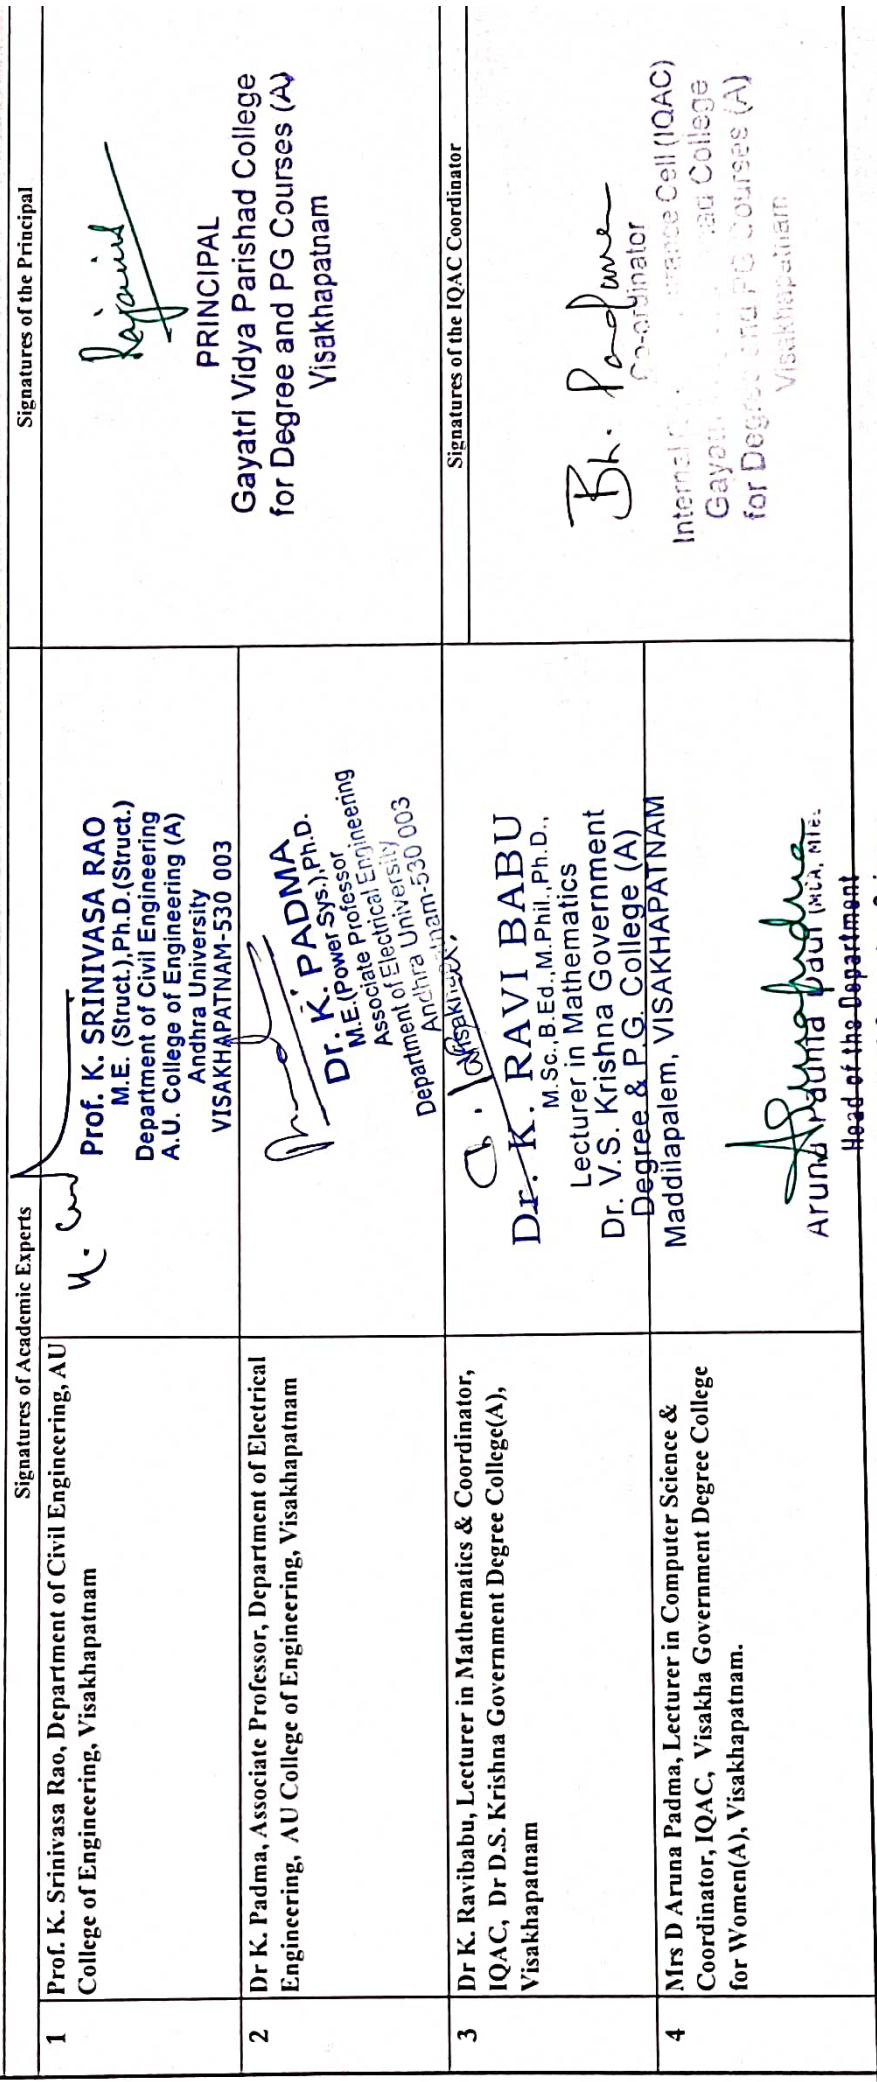 Signatures of Academic Experts
Signatures of the Principal
1
Prof. K. Srinivasa Rao, Department of Civil Engineering, AU
College of Engineering, Visakhapatnam
Prof. K. SRINIVASA RAO
M.E. (Struct.),Ph.D.(Struct.)
Department of Civil Engineering
A.U. College of Engineering (A)
Andhra University
VISAKHAPATNAM-530 003
PRINCIPAL
Gayatri Vidya Parishad College
for Degree and PG Courses (A)
Visakhapatnam
2
Dr K. Padma, Associate Professor, Department of Electrical
Engineering, AU College of Engineering, Visakhapatnam
Dr. K. PADMA
M.E.(Power Sys.),Ph.D.
Associate Professor
Department of Electrical Engineering
Andhra University
003
Signatures of the IQAC Coordinator
3
Dr K. Ravibabu, Lecturer in Mathematics & Coordinator,
IQAC, Dr D.S. Krishna Government Degree College(A),
Visakhapatnam
Dr. K. RAVI BABU
M.Sc.,B.Ed.,M.Phil.,Ph.D.,
Lecturer in Mathematics
Dr. V.S. Krishna Government
Degree & P.G. College (A)
Maddilapalem, VISAKHAPATNAM
Bh. Padma
Co-ordinator
Cell (IQAC)
College
for PG Courses (A)
Visakhapatnam
4
Mrs D Aruna Padma, Lecturer in Computer Science &
Coordinator, IQAC, Visakha Government Degree College
for Women(A), Visakhapatnam.
Head of the Department